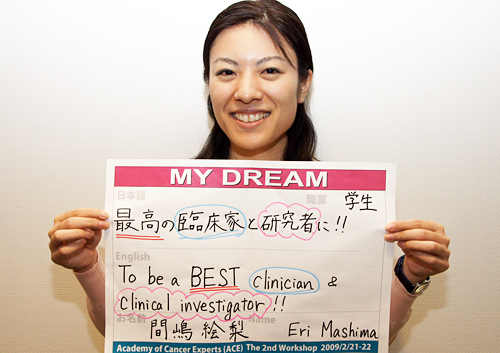 MY DREAM
日本語 職業 学生
最高の臨床家と研究者に!!
English
To be a BEST clinician &
clinical investigator!!
お名前 Name
間嶋絵梨 Eri Mashima
Academy of Cancer Experts (ACE) The 2nd Workshop 2009/2/21-22